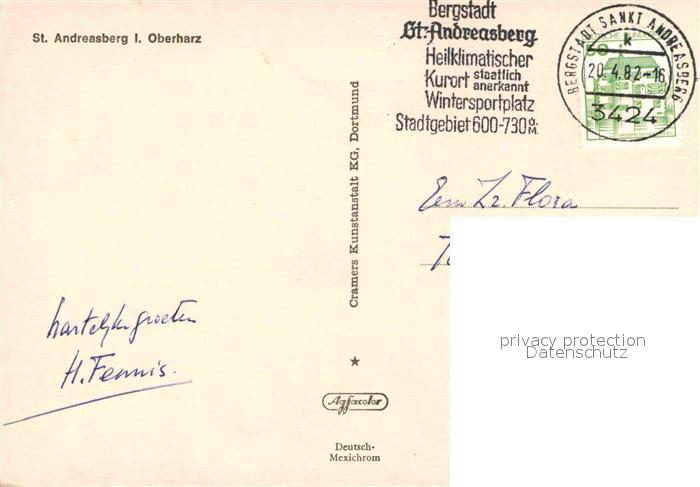 St. Andreasberg I. Oberharz
Bergstadt
St. Andreasberg
Heilklimatischer
Kurort staatlich anerkannt
Wintersportplatz
Stadtgebiet 600-730 ü. M.
BERGSTADT SANKT ANDREASBERG
k
20.4.82-16
3424
Cramers Kunstanstalt KG, Dortmund
Zr. Flora
hartelijke groeten
H. Fennis.
Agfacolor
Deutsch-
Mexichrom
privacy protection
Datenschutz